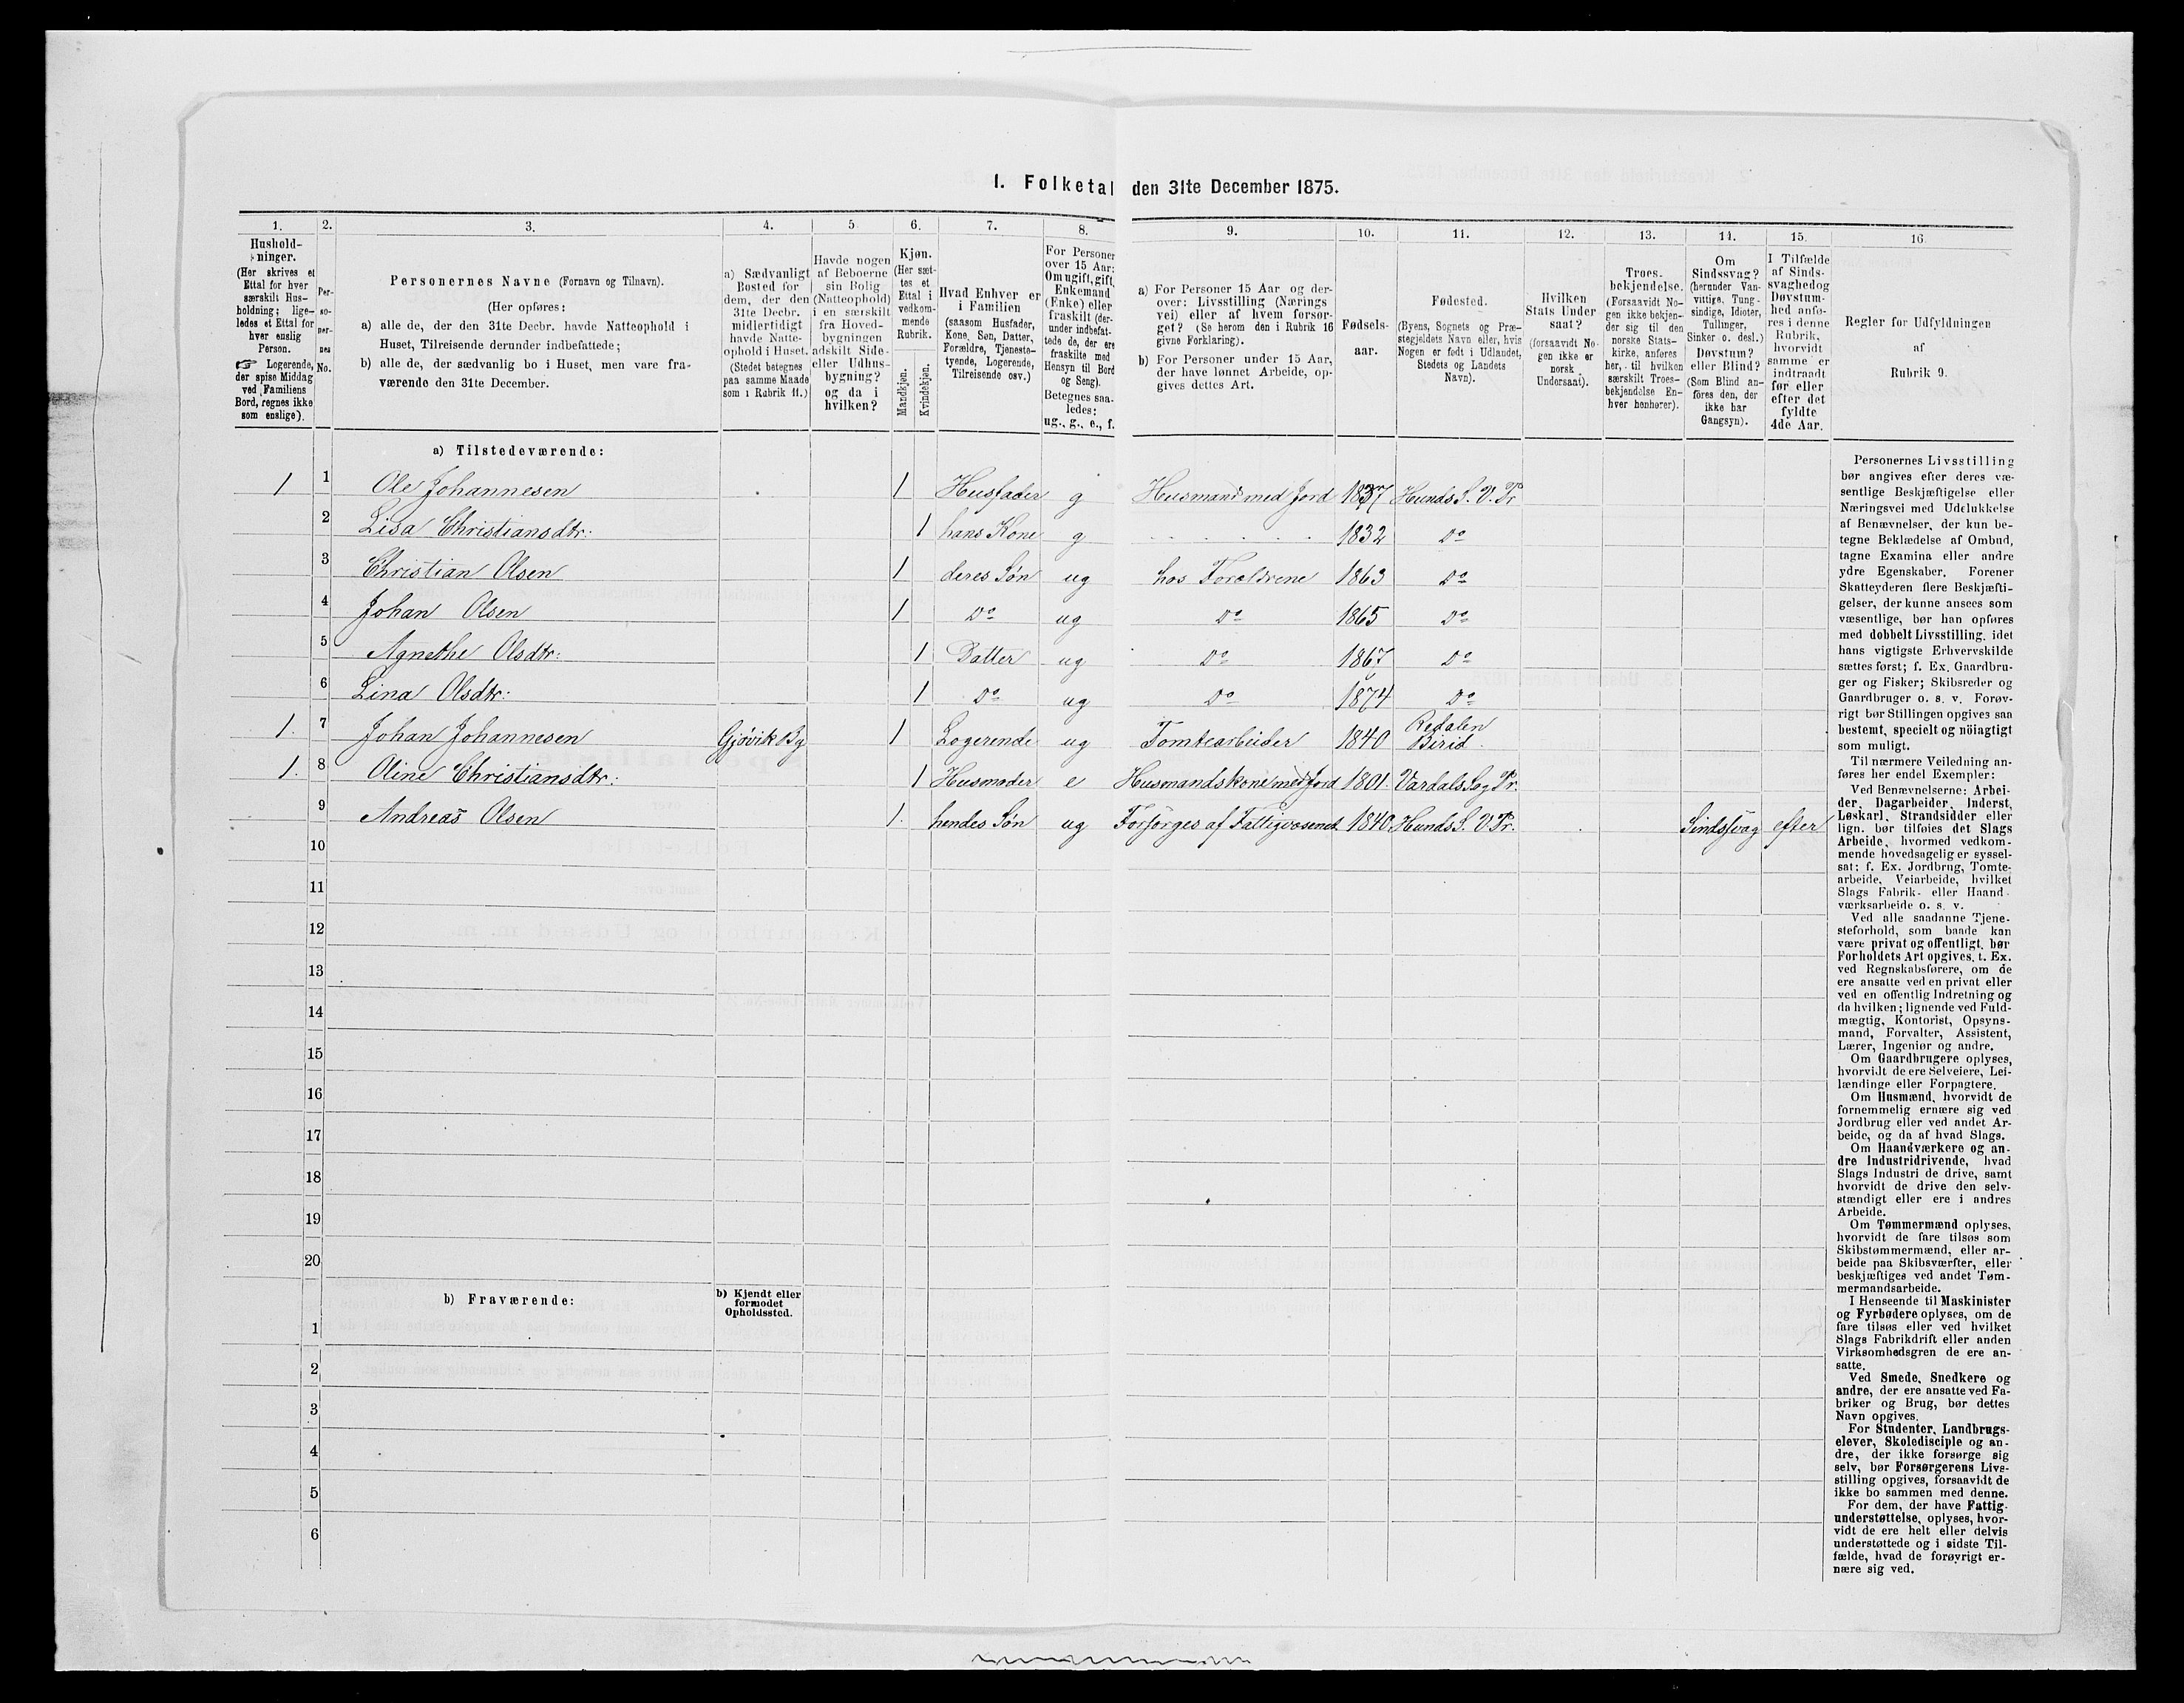 I. Folketal den 31te December 1875.
1. 2. 3. 4. 5 6. 7. 8. 9. 10. 11. 12. 13. 14. 15. 16.
Hushold-
ninger.
(Her skrives et
Ettal for hver
særskilt Hus-
holdning; lige-
ledes et Ettal for
hver enslig
Person.
☞ Logerende,
der spise Middag
ved Familiens
Bord, regnes ikke
som enslige).
Per-
so-
ner-
nes
No.
Personernes Navne (Fornavn og Tilnavn).
(Her opføres:
a) alle de, der den 31te Decbr. havde Natteophold i
Huset, Tilreisende derunder indbefattede;
b) alle de, der sædvanlig bo i Huset, men vare fra-
værende den 31te December.
a) Sædvanligt
Bosted for
dem, der den
31te Decbr.
midlertidigt
havde Natte-
ophold i Huset.
(Stedet betegnes
paa samme Maade
som i Rubrik 11.)
Havde nogen
af Beboerne
sin Bolig
(Natteophold)
i en særskilt
fra Hoved-
bygningen
adskilt Side-
eller Udhus-
bygning?
og da i
hvilken?
Kjøn.
(Her sæt-
tes et
Ettal i
vedkom-
mende
Rubrik.
Mandkjøn.
Kvindekjøn.
Hvad Enhver er
i Familien
(saasom Husfader,
Kone, Søn, Datter,
Forældre, Tjeneste-
tyende, Logerende,
Tilreisende osv.)
For Personer
over 15 Aar:
Om ugift, gift,
Enkemand
(Enke) eller
fraskilt (der-
under indbefat-
tede de, der ere
fraskilte med
Hensyn til Bord
og Seng).
Betegnes saa-
ledes:
ug., g., e., f.
a) For Personer 15 Aar og der-
over: Livsstilling (Nærings
vei) eller af hvem forsør-
get? (Se herom den i Rubrik 16
givne Forklaring).
b) For Personer under 15 Aar,
der have lønnet Arbeide, op-
gives dettes Art.
Fødsels-
aar.
Fødested.
(Byens, Sognets og Præ-
stegjeldets Navn eller, hvis
Nogen er født i Udlandet,
Stedets og Landets
Navn).
Hvilken
Stats Under
saat?
(forsaavidt No-
gen ikke er
norsk
Undersaat).
Troes-
bekjendelse.
(Forsaavidt No-
gen ikke bekjen-
der sig til den
norske Stats-
kirke, anføres
her, til hvilken
særskilt Troes-
bekjendelse En-
hver henhører).
Om
Sindssvag?
(herunder Van-
vittige, Tung-
sindige, Idioter,
Tullinger,
Sinker o. desl.)
Døvstum?
eller Blind?
(Som Blind an-
føres den, der
ikke har
Gangsyn).
I Tilfælde
af Sinds-
svaghed og
Døvstum-
hed anfø-
res i denne
Rubrik,
hvorvidt
samme er
indtraadt
før eller
efter det
fyldte
4de Aar.
Regler for Udfyldningen
af
Rubrik 9.
a) Tilstedeværende:
1 1 Ole Johannesen 1 Husfader g Husmand med Jord 1837 Hunds S. V. Pr
2 Lisa Christiansdtr: 1 hans Kone g 1832 Do
3 Christian Olsen 1 deres Søn ug hos Forældrene 1863 Do
4 Johan Olsen 1 Do ug Do 1865 Do
5 Agnethe Olsdtr: 1 Datter ug Do 1867 Do
6 Lina Olsdtr: 1 Do ug Do 1874 Do
1. 7 Johan Johannesen Gjøvik By 1 Logerende ug Tomtearbeider 1840 Redalen Birid.
1. 8 Oline Christiansdtr: 1 Husmoder e Husmandskone med Jord 1801. Vardals Sog Pr.
9 Andreas Olsen 1. hendes Søn ug Forsørges af Fattigvæsenet. 1840. Hunds S. V. Pr. Sindssvag efter
10
11
12
13
14
15
16
17
18
19
20
b) Fraværende:
b) Kjendt eller
formodet
Opholdssted.
1
2
3
4
5
6
Personernes Livsstilling
bør angives efter deres væ-
sentlige Beskjæftigelse eller
Næringsvei med Udelukkelse
af Benævnelser, der kun be-
tegne Beklædelse af Ombud,
tagne Examina eller andre
ydre Egenskaber. Forener
Skatteyderen flere Beskjæfti-
gelser, der kunne ansees som
væsentlige, bør han opføres
med dobbelt Livsstilling, idet
hans vigtigste Erhvervskilde
sættes først; f. Ex. Gaardbru-
ger og Fisker; Skibsreder og
Gaardbruger o. s. v. Forøv-
rigt bør Stillingen opgives saa
bestemt, specielt og nöiagtigt
som muligt.
Til nærmere Veiledning an-
føres her endel Exempler:
Ved Benævnelserne: Arbei-
der, Dagarbeider, Inderst,
Løskarl, Strandsidder eller
lign. bør tilføies det Slags
Arbeide, hvormed vedkom-
mende hovedsagelig er syssel-
sat; f. Ex. Jordbrug, Tomte-
arbeide, Veiarbeide, hvilket
Slags Fabrik- eller Haand-
værksarbeide o. s. v.
Ved alle saadanne Tjene-
steforhold, som baade kan
være privat og offentligt, bør
Forholdets Art opgives, t. Ex.
ved Regnskabsførere, om de
ere ansatte ved en privat eller
ved en offentlig Indretning og
da hvilken; lignende ved Fuld-
mægtig, Kontorist, Opsyns-
mand, Forvalter, Assistent,
Lærer, Ingeniør og andre.
Om Gaardbrugere oplyses,
hvorvidt de ere Selveiere, Lei-
lændinge eller Forpagtere.
Om Husmænd, hvorvidt de
fornemmelig ernære sig ved
Jordbrug eller ved andet Ar-
beide, og da af hvad Slags.
Om Haandværkere og an-
dre Industridrivende, hvad
Slags Industri de drive, samt
hvorvidt de drive den selv-
stændigt eller ere i andres
Arbeide.
Om Tømmermænd oplyses,
hvorvidt de fare tilsøs som
Skibstømmermænd, eller ar-
beide paa Skibsværfter, eller
beskjæftiges ved andet Tøm-
mermandsarbeide.
I Henseende til Maskinister
og Fyrbødere oplyses, om de
fare tilsøs eller ved hvilket
Slags Fabrikdrift eller anden
Virksomhedsgren de ere an-
satte.
Ved Smede, Snedkere og
andre, der ere ansatte ved Fa-
briker og Brug, bør dettes
Navn opgives.
For Studenter, Landbrugs-
elever, Skoledisciple og an-
dre, der ikke forsørge sig
selv, bør Forsørgerens Livs-
stilling opgives, forsaavidt de
ikke bo sammen med denne.
For dem, der have Fattig-
understøttelse, oplyses, hvor-
vidt de ere helt eller delvis
understøttede og i sidste Til-
fælde, hvad de forøvrigt er-
nære sig ved.